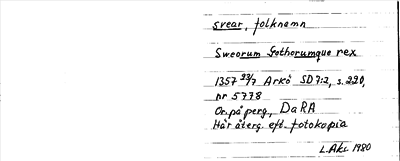 svear, folknamn
Sweorum Gothorumque rex
1357 22/7 Arkö SD 7:2, s. 220,
nr 5778
Or. på perg., DaRA
Här återg. eft. fotokopia
L.Akc 1980